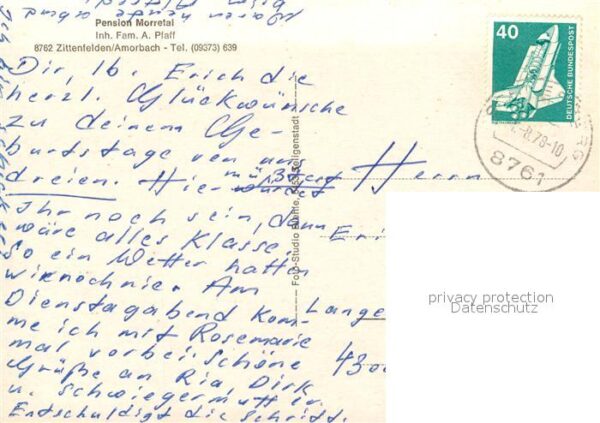 Pension Morretal
Inh. Fam. A. Pfaff
8762 Zittenfelden/Amorbach - Tel. (09373) 639
Dir, lb. Erich die
herzl. Glückwünsche
zu deinem Ge-
burtstage von uns
dreien. Hier müßtet
Ihr noch sein, dann
wäre alles Klasse.
So ein Wetter hatten
wir noch nie. Am
Dienstagabend kom-
me ich mit Rosemarie
mal vorbei. Schöne
Grüße an Ria Dirk
u. Schwiegermutter.
Entschuldigt die Schrift.
Foto-Studio
Herrn
Eri
Lange
4300
40
DEUTSCHE BUNDESPOST
8.78-10
8761
privacy protection
Datenschutz